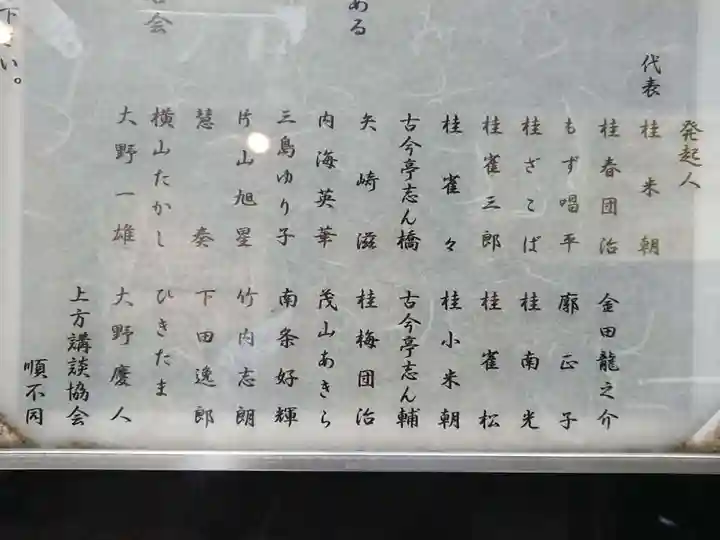 発起人
代表 桂米朝
桂春団治 金田龍之介
もず唱平 廓正子
桂ざこば 桂南光
桂雀三郎 桂雀松
桂雀々 桂小米朝
古今亭志ん橋 古今亭志ん輔
矢崎滋 桂梅団治
内海英華 茂山あきら
三島ゆり子 南条好輝
片山旭星 竹内志朗
慧奏 下田逸郎
横山たかし ひきたま
大野一雄 大野慶人
上方講談協会
順不同
ある
会
下さい。